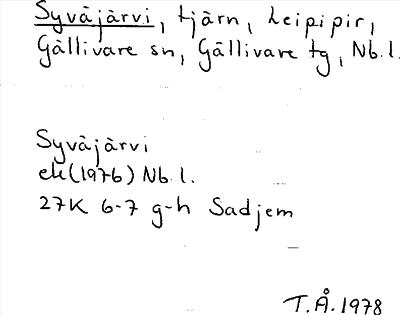 Syväjärvi, tjärn, Leipipir,
Gällivare sn, Gällivare tg, Nb.l.
Syväjärvi
ek(1976) Nb.l.
27K 6-7 g-h Sadjem
T.Å.1978